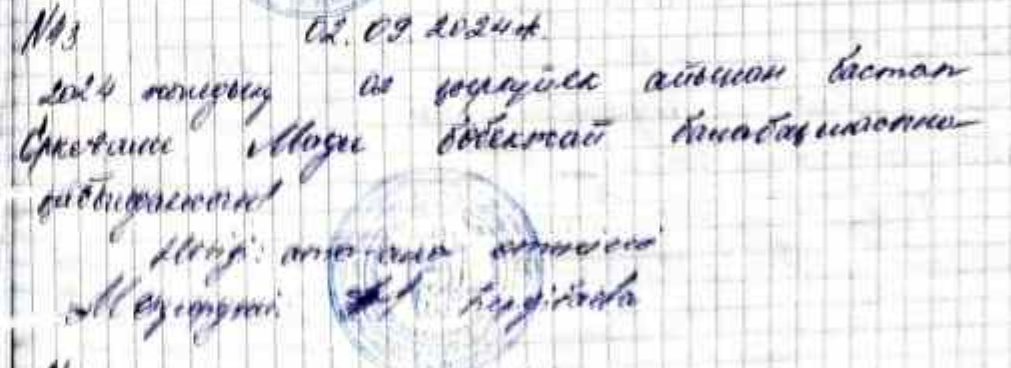 №43 02.09.2024ж.
2024 жылдың 02 қыркүйек айынан бастап
Мади бөбекжай балабақшасына
қабылдансын
Негізі: ата-ана өтініші
Меңгеруші